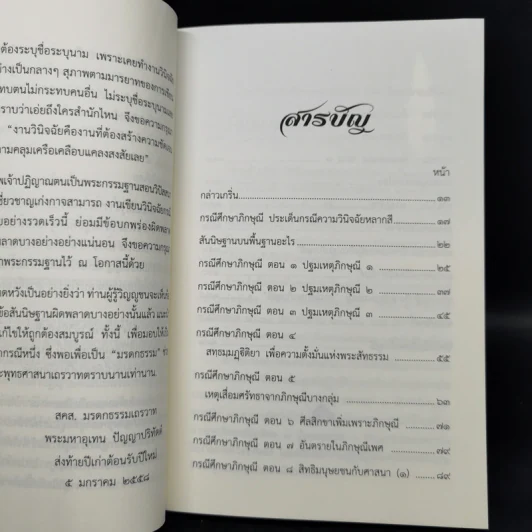 ต้องระบุชื่อระบุนาม เพราะเคยทำงานวินิจฉัย
างเป็นกลางๆ สุภาพตามมารยาทของการเขียน
ทบตนไม่กระทบคนอื่น ไม่ระบุชื่อระบุนาม
ราบว่าเอ่ยถึงใครสำนักไหน จึงขอความกรุณา
"งานวินิจฉัยคืองานที่ต้องสร้างความชัดเจน
ามคลุมเครือเคลือบแคลงสงสัยเลย"
พเจ้าปฏิญาณตนเป็นพระกรรมฐานสอนวิปัสสนา
ชี่ยวชาญเก่งกาจสามารถ งานเขียนวินิจฉัย
อย่างรวดเร็วนี้ ย่อมมีข้อบกพร่องผิดพลาด
ลาดบางอย่างอย่างแน่นอน จึงขอความกรุณา
าพระกรรมฐานไว้ ณ โอกาสนี้ด้วย
ดหวังเป็นอย่างยิ่งว่า ท่านผู้รู้วิญญูชนจะเห็น
ข้อสันนิษฐานผิดพลาดบางอย่างนั้นแล้ว
ก้ไขให้ถูกต้องสมบูรณ์ ทั้งนี้ เพื่อมอบให้เป็น
ากรณีหนึ่ง ซึ่งพอเพื่อเป็น "มรดกธรรม"
ะพุทธศาสนาเถรวาทตราบนานเท่านาน
สคส. มรดกธรรมเถรวาท
พระมหาอุเทน ปัญญาปริทัตต์
ส่งท้ายปีเก่าต้อนรับปีใหม่
๕ มกราคม ๒๕๕๘
สารบัญ
หน้า
กล่าวเกริ่น ........ ๑๓
กรณีศึกษาภิกษุณี ประเด็นกรณีความวินิจฉัยหลากสี ........ ๑๗
สันนิษฐานบนพื้นฐานอะไร ........ ๒๒
กรณีศึกษาภิกษุณี ตอน ๑ ปฐมเหตุภิกษุณี ๑ ........ ๒๕
กรณีศึกษาภิกษุณี ตอน ๒ ปฐมเหตุภิกษุณี ๒ ........ ๓๗
กรณีศึกษาภิกษุณี ตอน ๓ ปฐมเหตุภิกษุณี ๓ ........ ๔๕
กรณีศึกษาภิกษุณี ตอน ๔
สทธมฺมฏฺฐิติยา เพื่อความตั้งมั่นแห่งพระสัทธรรม ........ ๕๕
กรณีศึกษาภิกษุณี ตอน ๕
เหตุเสื่อมศรัทธาจากภิกษุณีบางกลุ่ม ........ ๖๓
กรณีศึกษาภิกษุณี ตอน ๖ ศีลสิกขาเพิ่มเพราะภิกษุณี ........ ๗๑
กรณีศึกษาภิกษุณี ตอน ๗ อันตรายในภิกษุณีเพศ ........ ๗๙
กรณีศึกษาภิกษุณี ตอน ๘ สิทธิมนุษยชนกับศาสนา (๑) ........ ๘๙